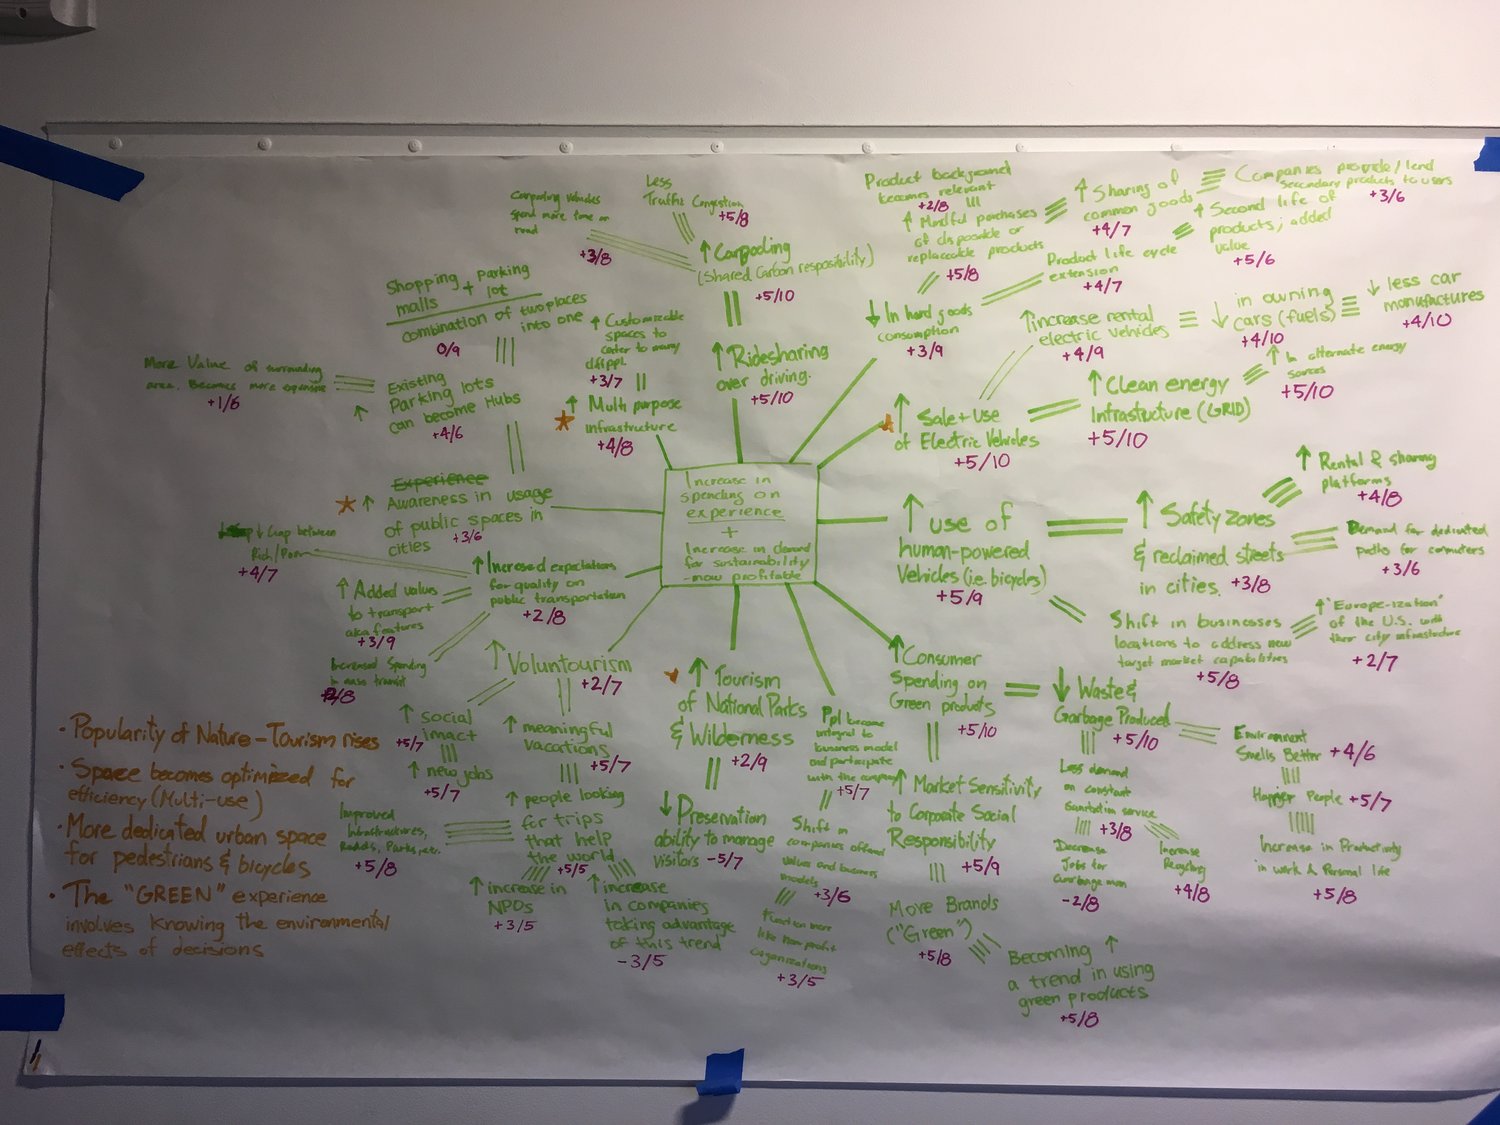 Increase in
spending on
experience
+
Increase in demand
for sustainability
-now profitable
Less
Traffic Congestion
+5/8
Carpooling vehicles
spend more time on
road
+3/8
↑ Carpooling
(Shared Carbon resposibility)
+5/10
↑ Ridesharing
over driving.
+5/10
Product background
becomes relevant
+2/8
↑ Mindful purchases
of disposable or
replaceable products
+5/8
↑ Sharing of
common goods
+4/7
Companies provide/lend
Secondary products to users
+3/6
↑ Second life of
products, added
value
+5/6
Product life cycle
extension
+4/7
↓ In hard goods
consumption
+3/9
↑ increase rental
electric vehicles
+4/9
↓ in owning
cars (fuels)
+4/10
↓ less car
manufactures
+4/10
↑ In alternate energy
sources
+5/10
↑ Clean energy
Infrastructure (GRID)
+5/10
↑ Sale + use
of Electric Vehicles
+5/10
↑ use of
human-powered
Vehicles (i.e. bicycles)
+5/9
↑ Safety zones
& reclaimed streets
in cities. +3/8
↑ Rental & sharing
platforms
+4/8
Demand for dedicated
paths for commuters
+3/6
Shift in businesses
locations to address new
target market capabilities
+5/8
↑ "Europe-ization"
of the U.S. with
their city infrastructure
+2/7
↑ Consumer
Spending on
Green products
+5/10
↓ Waste &
Garbage Produced
+5/10
Environment
Smells Better +4/6
Happier People +5/7
Increase in Productivity
in work & Personal life
+5/8
Less demand
on constant
Sanitation service
+3/8
Decrease
Jobs for
Garbage man
-2/8
Increase
Recycling
+4/8
↑ Market Sensitivity
to Corporate Social
Responsibility
+5/9
More Brands
("Green")
+5/8
Becoming ↑
a trend in using
green products
+5/8
Ppl become
integral to
business model
and participate
with the company
+5/7
Shift in
companies offered
values and business
models
+3/6
Function more
like Non profit
organizations
+3/5
↑ Tourism
of National Parks
& Wilderness
+2/9
↓ Preservation
ability to manage
visitors -5/7
↑ Voluntourism
+2/7
↑ Social
imact
+5/7
↑ new jobs
+5/7
↑ meaningful
vacations
+5/7
↑ people looking
for trips
that help
the world
+5/5
Improved
Infrastructures,
Roads, Parks, etc.
+5/8
↑ increase in
NPOs
+3/5
↑ increase
in companies
taking advantage
of this trend
-3/5
↑ Increased expectations
for quality on
public transportation
+2/8
↓ Gap between
Rich/Poor
+4/7
↑ Added values
to transport
aka features
+3/9
Increased Spending
in mass transit
Experience
↑ Awareness in usage
of public spaces in
cities +3/6
Existing
↑ Parking lots
can become Hubs
+4/6
More Value of surrounding
area. Becomes more expensive
+1/6
Shopping + Parking
malls lot
combination of two places
into one
0/9
↑ Customizable
spaces to
cater to many
diff ppl.
+3/7
↑ Multi purpose
infrastructure
+4/8
• Popularity of Nature-Tourism rises
• Space becomes optimized for
efficiency (Multi-use)
• More dedicated urban space
for pedestrians & bicycles
• The "GREEN" experience
involves knowing the environmental
effects of decisions